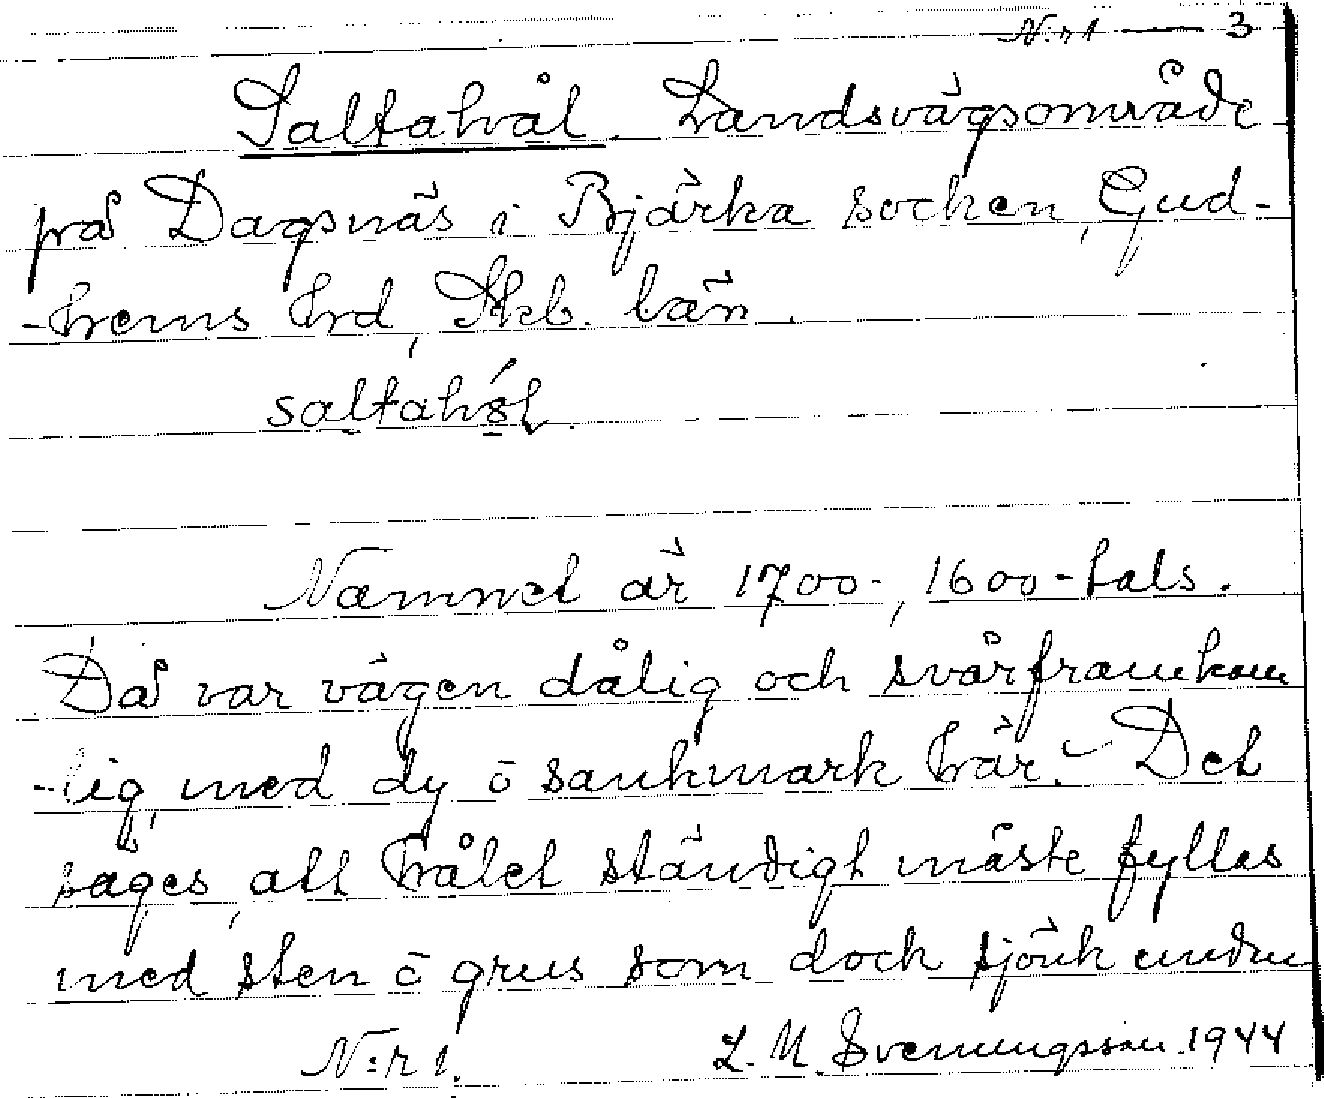 N:r 1 — 3
Saltahål. Landsvägsområde
på Dagsnäs i Bjärka socken, Gud-
-hems hrd, Skb. län.
saltahål
Namnet är 1700-, 1600-tals.
Då var vägen dålig och svårframkom
-lig, med dy o sankmark här. Det
säges, att hålet ständigt måste fyllas
med sten o grus som doch sjönk undan
N:r 1. L. M. Svenungsson. 1944